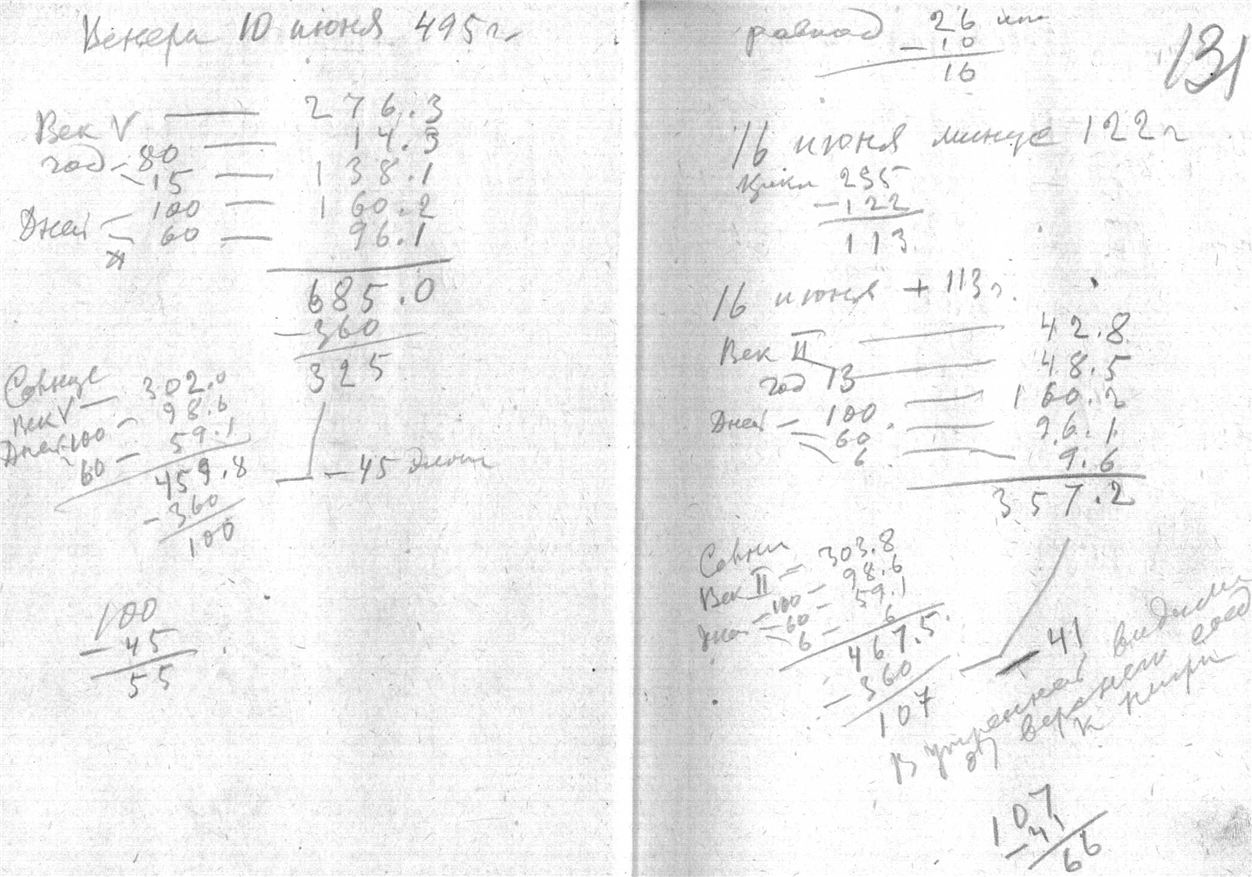 Венера 10 июня 495 г.
Век V — 276.3
год - 80 — 14.5
- 15 — 138.1
Дней - 100 — 160.2
- 60 — 96.1
685.0
- 360
325
Солнце
Век V — 302.0
Дней 100 - 98.6
60 - 59.1
459.8
- 360
100
- 45
100
- 45
55
26
- 10
16
131
16 июня минус 122 г
Цикл 235
- 122
113
16 июня + 113 г.
Век II — 42.8
год 13 — 48.5
Дней - 100 — 160.2
- 60 — 96.1
6 — 9.6
357.2
Век II - 303.8
- 100 - 98.6
Дней - 60 - 59.1
6 - 6
467.5
- 360
107
- 41
В утренней
от верхнего
к
107
- 41
66